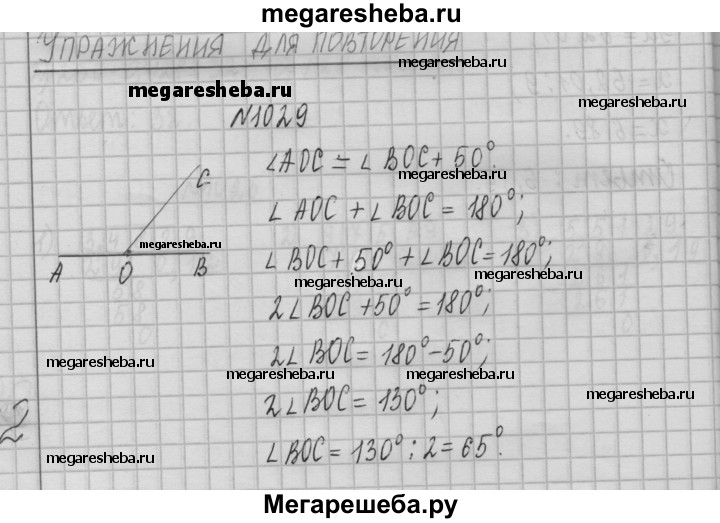 megaresheba.ru
УПРАЖНЕНИЯ ДЛЯ ПОВТОРЕНИЯ
megaresheba.ru
megaresheba.ru
megaresheba.ru
N1029
∠AOC = ∠BOC + 50°.
megaresheba.ru
C
∠AOC + ∠BOC = 180°;
megaresheba.ru
A O B
∠BOC + 50° + ∠BOC = 180°;
megaresheba.ru
megaresheba.ru
2∠BOC + 50° = 180°;
2∠BOC = 180° - 50°;
megaresheba.ru
megaresheba.ru
megaresheba.ru
2∠BOC = 130°;
megaresheba.ru
2
∠BOC = 130° : 2 = 65°.
megaresheba.ru
megaresheba.ru
Мегарешеба.ру